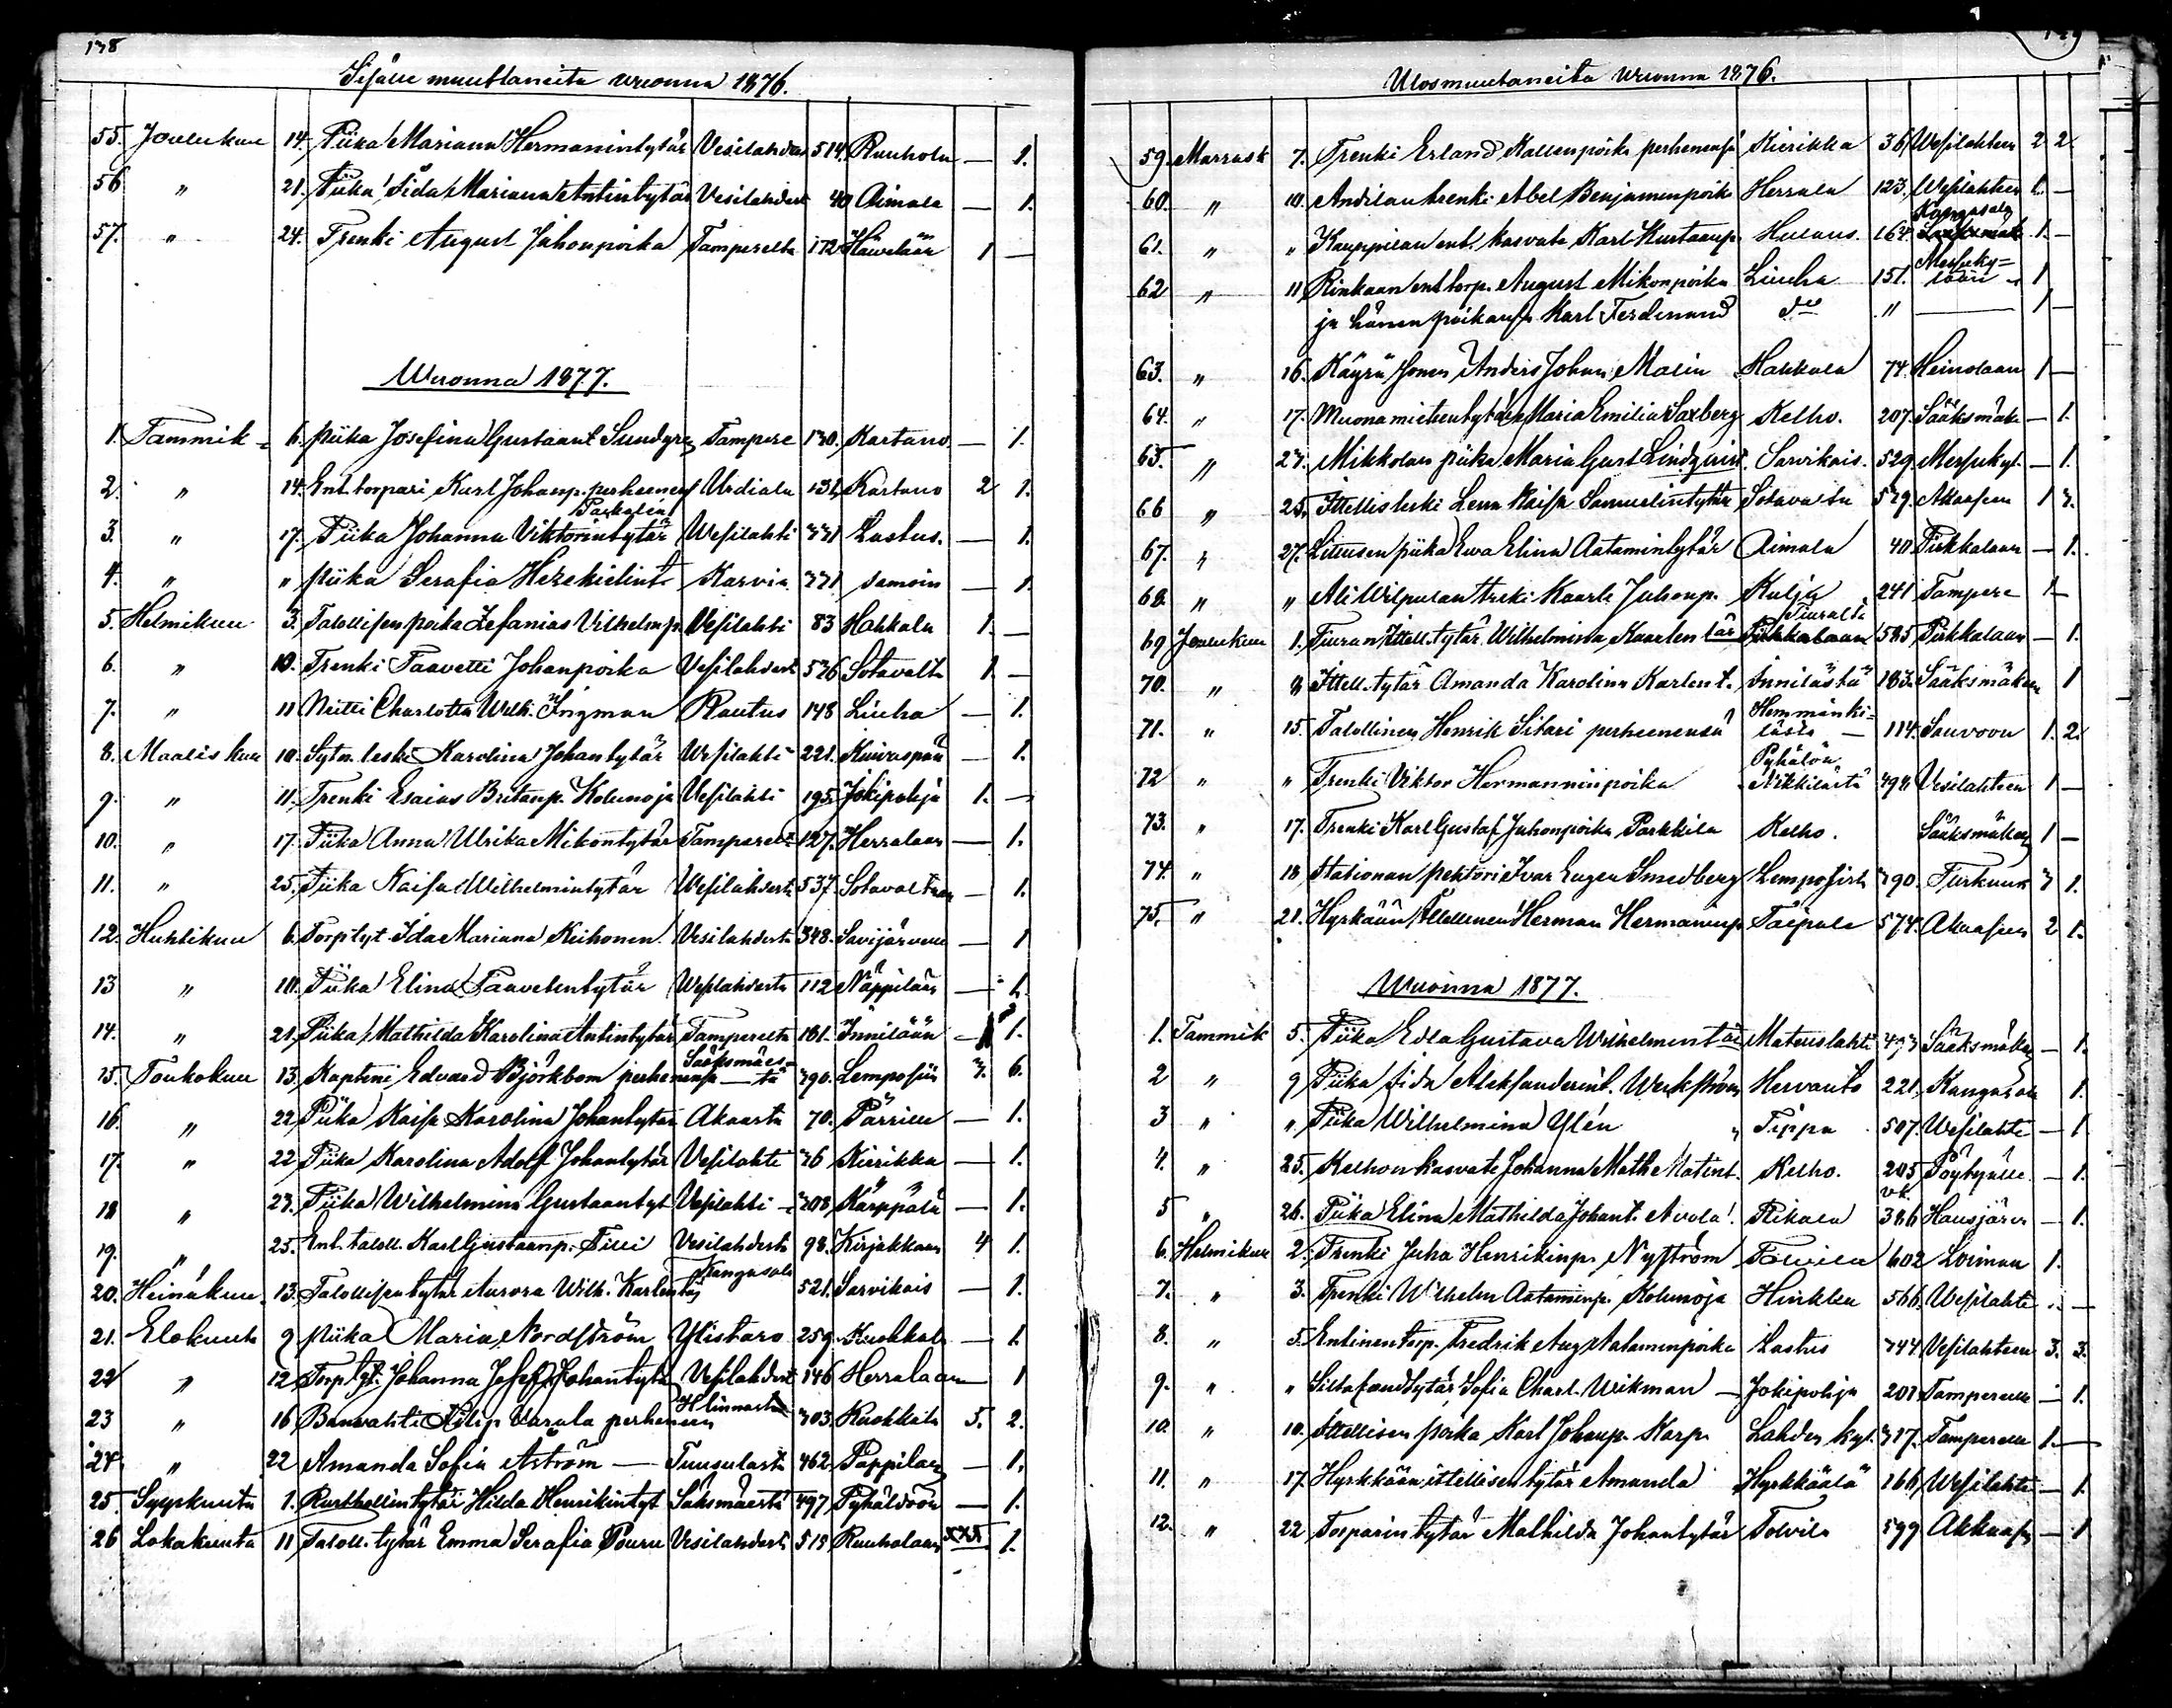 138
Sisälle muuttaneita wuonna 1876.
55. Joulukuu 14. Piika Mariana Hermanintytär Vesilahdes 514 Ruuhola — 1.
56 " 21. Piika Iida Mariana Antintytär Vesilahdest 40 Aimala — 1.
57. " 24. Trenki August Juhonpoika Tamperelta 172 1 —
Wuonna 1877.
1. Tammik 6. Piika Josefina Gustaavt. Tampere 130. Kartano — 1.
2. " 14. Ent. torpari Karl Johanp. perheenens Urdiala 132 Kartano 2 1.
3. " 17. Piika Johanna Viktorintytär Wesilahti 331 Lastus. — 1.
4. " " Piika Serafia Hezekielint. Karvia 331 samoin — 1.
5. Helmikuu 3. Talollisen poika Zefanias Vilhelmp. Vesilahti 83 Hakkala 1. —
6. " 10. Trenki Taavetti Johanpoika Vesilahdest 526 Sotavalta 1. —
7. " 11 Charlotta Wilh. Ingman Rautus 148 Liuha — 1.
8. Maaliskuu 10. leski Karolina Johantytär Wesilahti 221. Kuivaspää — 1.
9. " 11. Trenki Esaias Kolunoja Vesilahti 195. Jokipohja 1. —
10. " 17. Piika Anna Ulrika Mikontytär Tamperelt 127. Herralaan — 1.
11. " 25. Piika Kaisa Wilhelmintytär Wesilahdest. 537. Sotavaltaan — 1.
12. Huhtikuu 6. Torp. tyt. Ida Mariana Kiihonen. Vesilahdesta 348. Savijärvelle — 1
13 " 10. Piika Elina Taavetintytär Vesilahdesta 112 Näppilään — 1.
14. " 21. Piika Mathilda Karolina Antintytär Tamperelta 181. Innilään — 1.
Sääksmäes=
15. Toukokuu 13. Kapteni Edvard Björkbom perheinensa — tä 390. Lempoisiin 3. 6.
16. " 22 Piika Kaisa Karolina Johantytär Akaasta 70. — 1.
17. " 22 Piika Karolina Adolf. Johantytär Vesilahti 36 Kierikka — 1.
18 " 23. Piika Wilhelmina Gustaantyt Vesilahti 208 Kärppälä — 1.
19. " 25. Ent. taloll. Karl Gustaanp. Tilli Vesilahdesta 98. Kirjakkaan 4 1.
Kangasala
20. Heinäkuu 13. Talollisen tytär Aurora Wilh. Karlentyt 521. Sarvikais — 1.
21. Elokuuta 9 Piika Maria Nordström Ylistaro 259. Kuokkala — 1.
22 " 12 Torp. tyt. Johanna Josef. Johantytär Vesilahdest 146 Herralaan — 1
23 " 16 Filip Varala perheineen 303. Kuokkala 5. 2.
24. " 22 Amanda Sofia Åström — Tuusulasta 462 Pappilan — 1.
25. Syyskuuta 1. Rusthollin tytär Hilda Henrikintyt Sääksmäestä 497 Pyhältöön — 1.
26 Lokakuuta 11 Taloll. tytär Emma Serafia Pouru Vesilahdesta 515 Ruuholaan 1.
Ulosmuutaneita wuonna 1876.
59. Marrask 7. Trenki Erland Kallenpoika perheneensä Kierikka 36 Wesilahteen 2 2
60. " 10. Andilan trenki Abel Benjaminpoika Herrala 123. Wesilahteen 1. —
Kangasala
61. " " Kauppilan ent. kasvatti Karl Kustaanp. Hulaus. 164. 1. —
Messuky=
62 " 11 Rinkaan ent. torp. August Mikonpoika Liuha 151. lään 1
ja hänen poikansa Karl Ferdinand do " — 1 —
63. " 16. Käyrä Jonas Anders Johan Malin Hakkala 74. Heinolaan 1 —
64. " 17. Muonamiehentytär Maria Emilia Saxberg Kelho. 207. Sääksmäke — 1.
65. " 23. Mikkolan piika Maria Gust. Lindqvist Sarvikais. 529. Messukyl. — 1.
66 " 25. Ittellis leski Leena Kaisa Samuelintytär Sotavalta 539. Akaaseen 1 3.
67. " 27. piika Ewa Elina Aatamintytär Aimala 40 Pirkkalaan — 1.
68. " " Kaarle Juhonp. Kulju 241 Tampere 1 —
Tiuralta
69 Joulukuu 1. Tiuran ittell. tytär Wilhelmina Kaarlentär 585 Pirkkalaan — 1.
70. " 8 Ittell. tytär Amanda Karolina Karlent. Innilästä 183. Sääksmäkeen 1
Hemmänki=
71. " 15. Talollinen Henrik Sitari perheeneensä lästä — 114. Sauvoon 1. 2.
Pyhälön
72 " " Trenki Viktor Hermanninpoika Nikkilästä 494 Vesilahteen 1 —
73. " 17. Trenki Karl Gustaf Juhonpoika Parkkila Kelho. Sääksmäkeen 1 —
74. " 18 Stationan inspehtori Ivar Eugen Smedberg Lempoisist 390. Turkuun 3 1.
75. " 21. Ittellinen Herman Hermaninp. Taipale 574. Akaaseen 2 1.
Wuonna 1877.
1. Tammik 5. Piika Edla Gustava Wilhelmintär Mataoslahti 493 Sääksmäkeen — 1.
2 " 9 Piika Iida Aleksanderint. Werkström Hervanto 221. Kangasala 1.
3 " " Piika Wilhelmina Ylén " Tippa 507. Wesilahti — 1.
4. " 25. Kelhon kasvatti Johanna Math. Matint. Kelho. 205 Pöytyälle — 1.
vk.
5 " 26. Piika Elina Mathilda Johant. Avola Rikala 386 Hausjärvi — 1.
6. Helmikuu 2. Trenki Juha Henrikinp. Nyström Tolvila 602 Loimaa 1.
7. " 3. Trenki Wilhelm Aataminp. Kolunoja Hinkkla 566. Vesilahti —
8. " 5. Entinen torp. Fredrik Aug. Aataminpoika Lastus 344. Vesilahteen 3. 3.
9. " " Siltafoudtytär Sofia Charl. Wikman — Jokipohja 201 Tamperelle — 1.
10. " 10. Ittellisen poika Karl Johanp. Karp. Lahden kyl. 317. Tamperelle 1. —
11. " 17. Hyrkkään ittellisen tytär Amanda Hyrkkäälä 166 Wesilahte — 1.
12. " 22 Torparin tytär Mathilda Johantytär Tolvila 599 Akkaas — 1